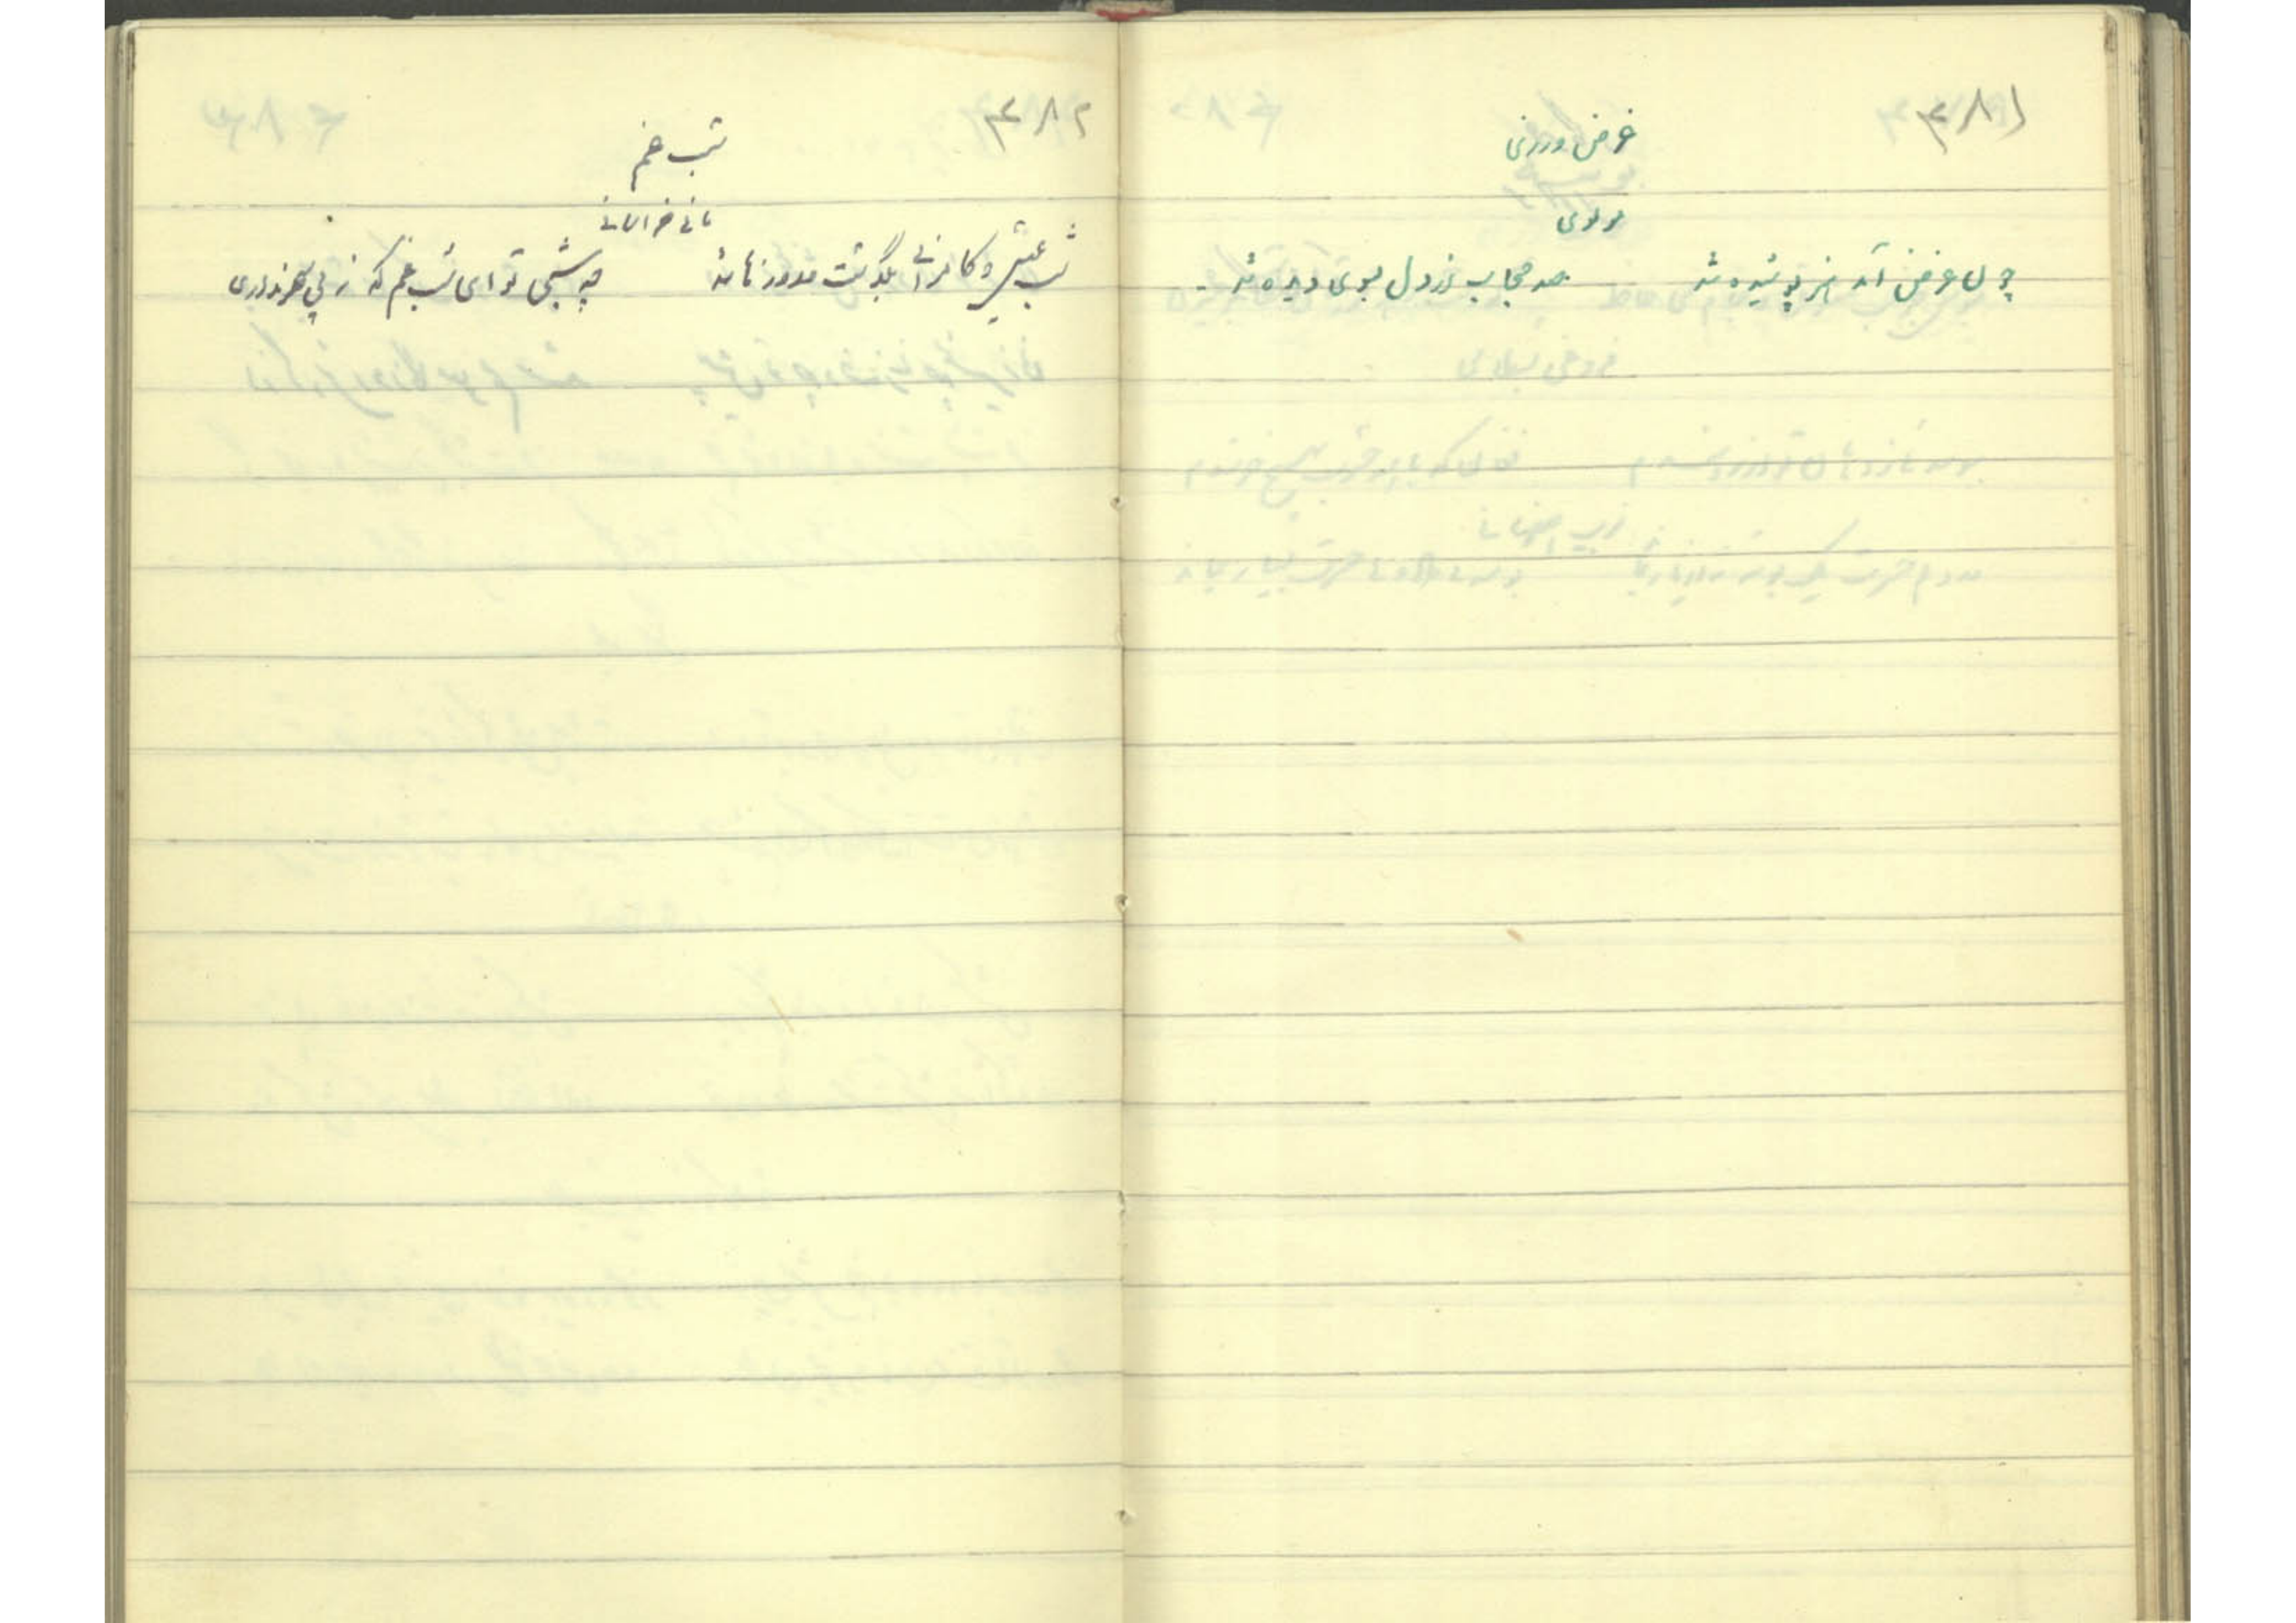 ۴۸۱
غرض ورزی
مولوی
چون غرض آمد هنر پوشیده شد صد حجاب از دل بسوی دیده شد
۴۸۲
شب غم
مانی خراسانی
شب عیش و کامرانی بگذشت و روز ما شد چه شبی تو ای شب غم که ز پی سحر نداری